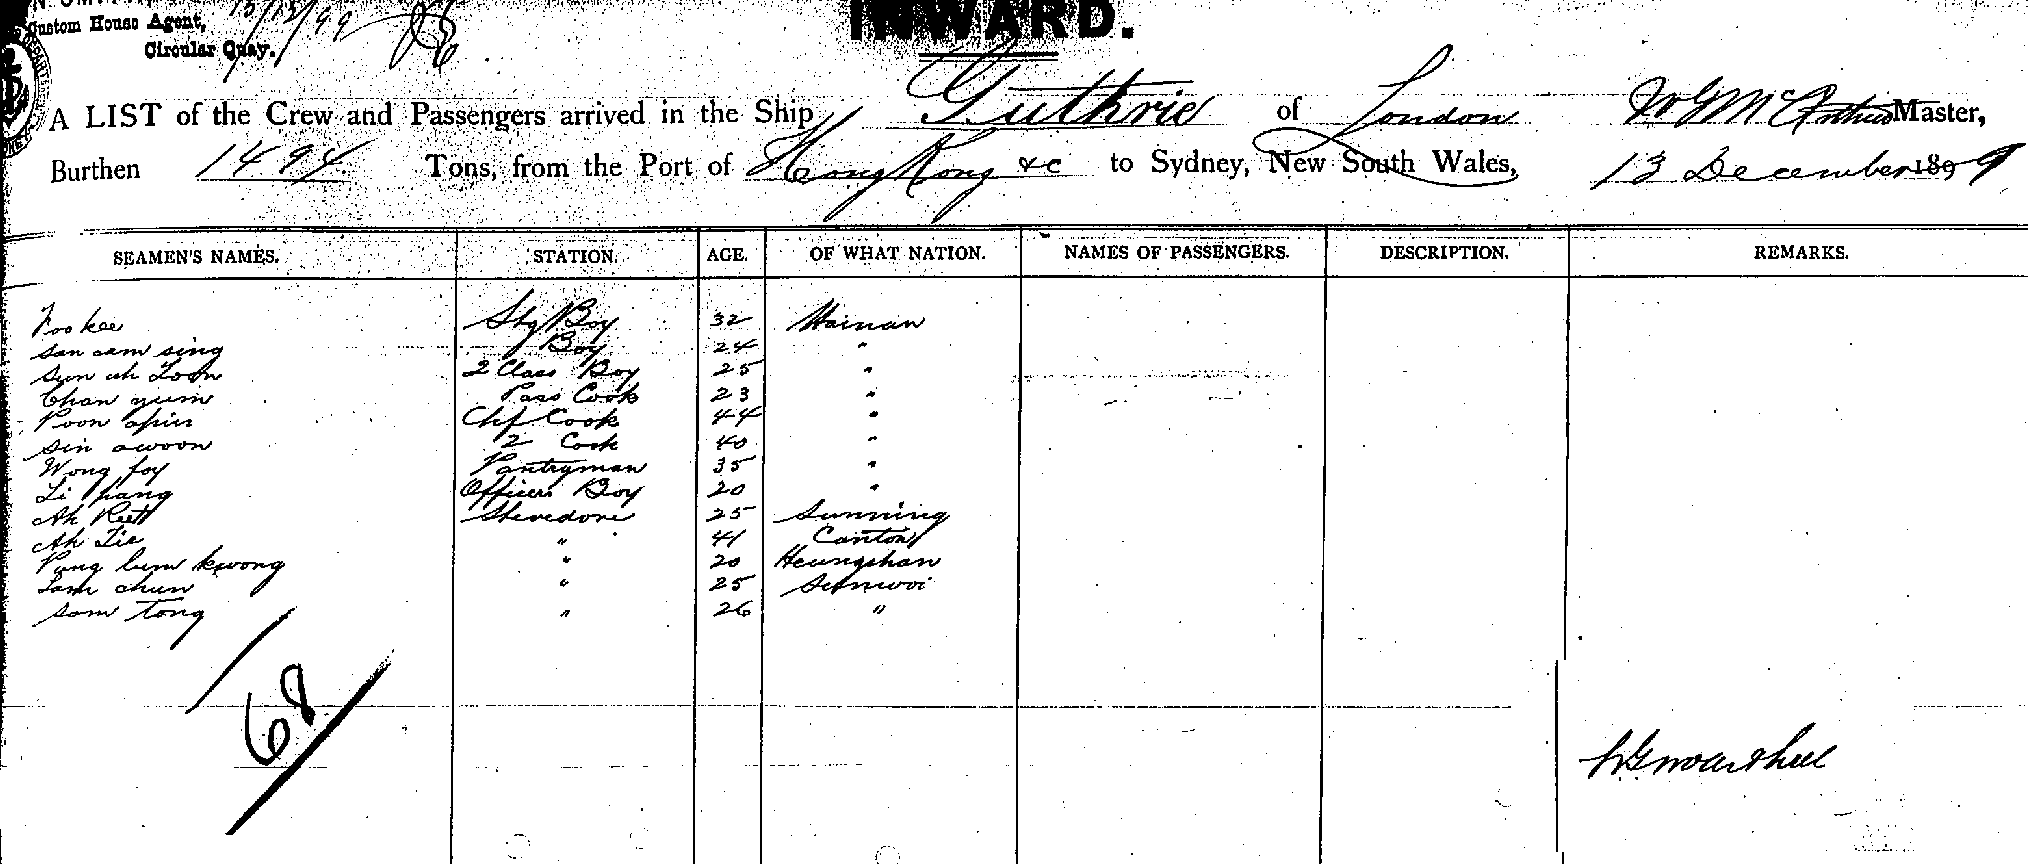 Custom House Agent,
Circular Quay.
13/12/99
INWARD.
A LIST of the Crew and Passengers arrived in the Ship Guthrie of London W G McArthur Master,
Burthen 1494 Tons, from the Port of Hong Kong &c to Sydney, New South Wales, 13 December 1899
SEAMEN'S NAMES. STATION. AGE. OF WHAT NATION. NAMES OF PASSENGERS. DESCRIPTION. REMARKS.
Foo kee Boy 32 Hainan
San aam sing Boy 24 "
Sun ah Loon 2 Class Boy 25 "
Chan yum Pass Cook 23 "
Poon Chf Cook 44 "
Sin awoon 2 Cook 40 "
Wong foy Pantryman 35 "
Li pang Officers Boy 20 "
Ah Stevedore 25 Sunning
Ah Tie " 41 Canton
Pang lum kwong " 20 Heungshan
Lam chun " 25 Sunwoi
Sam Tong " 26 "
68